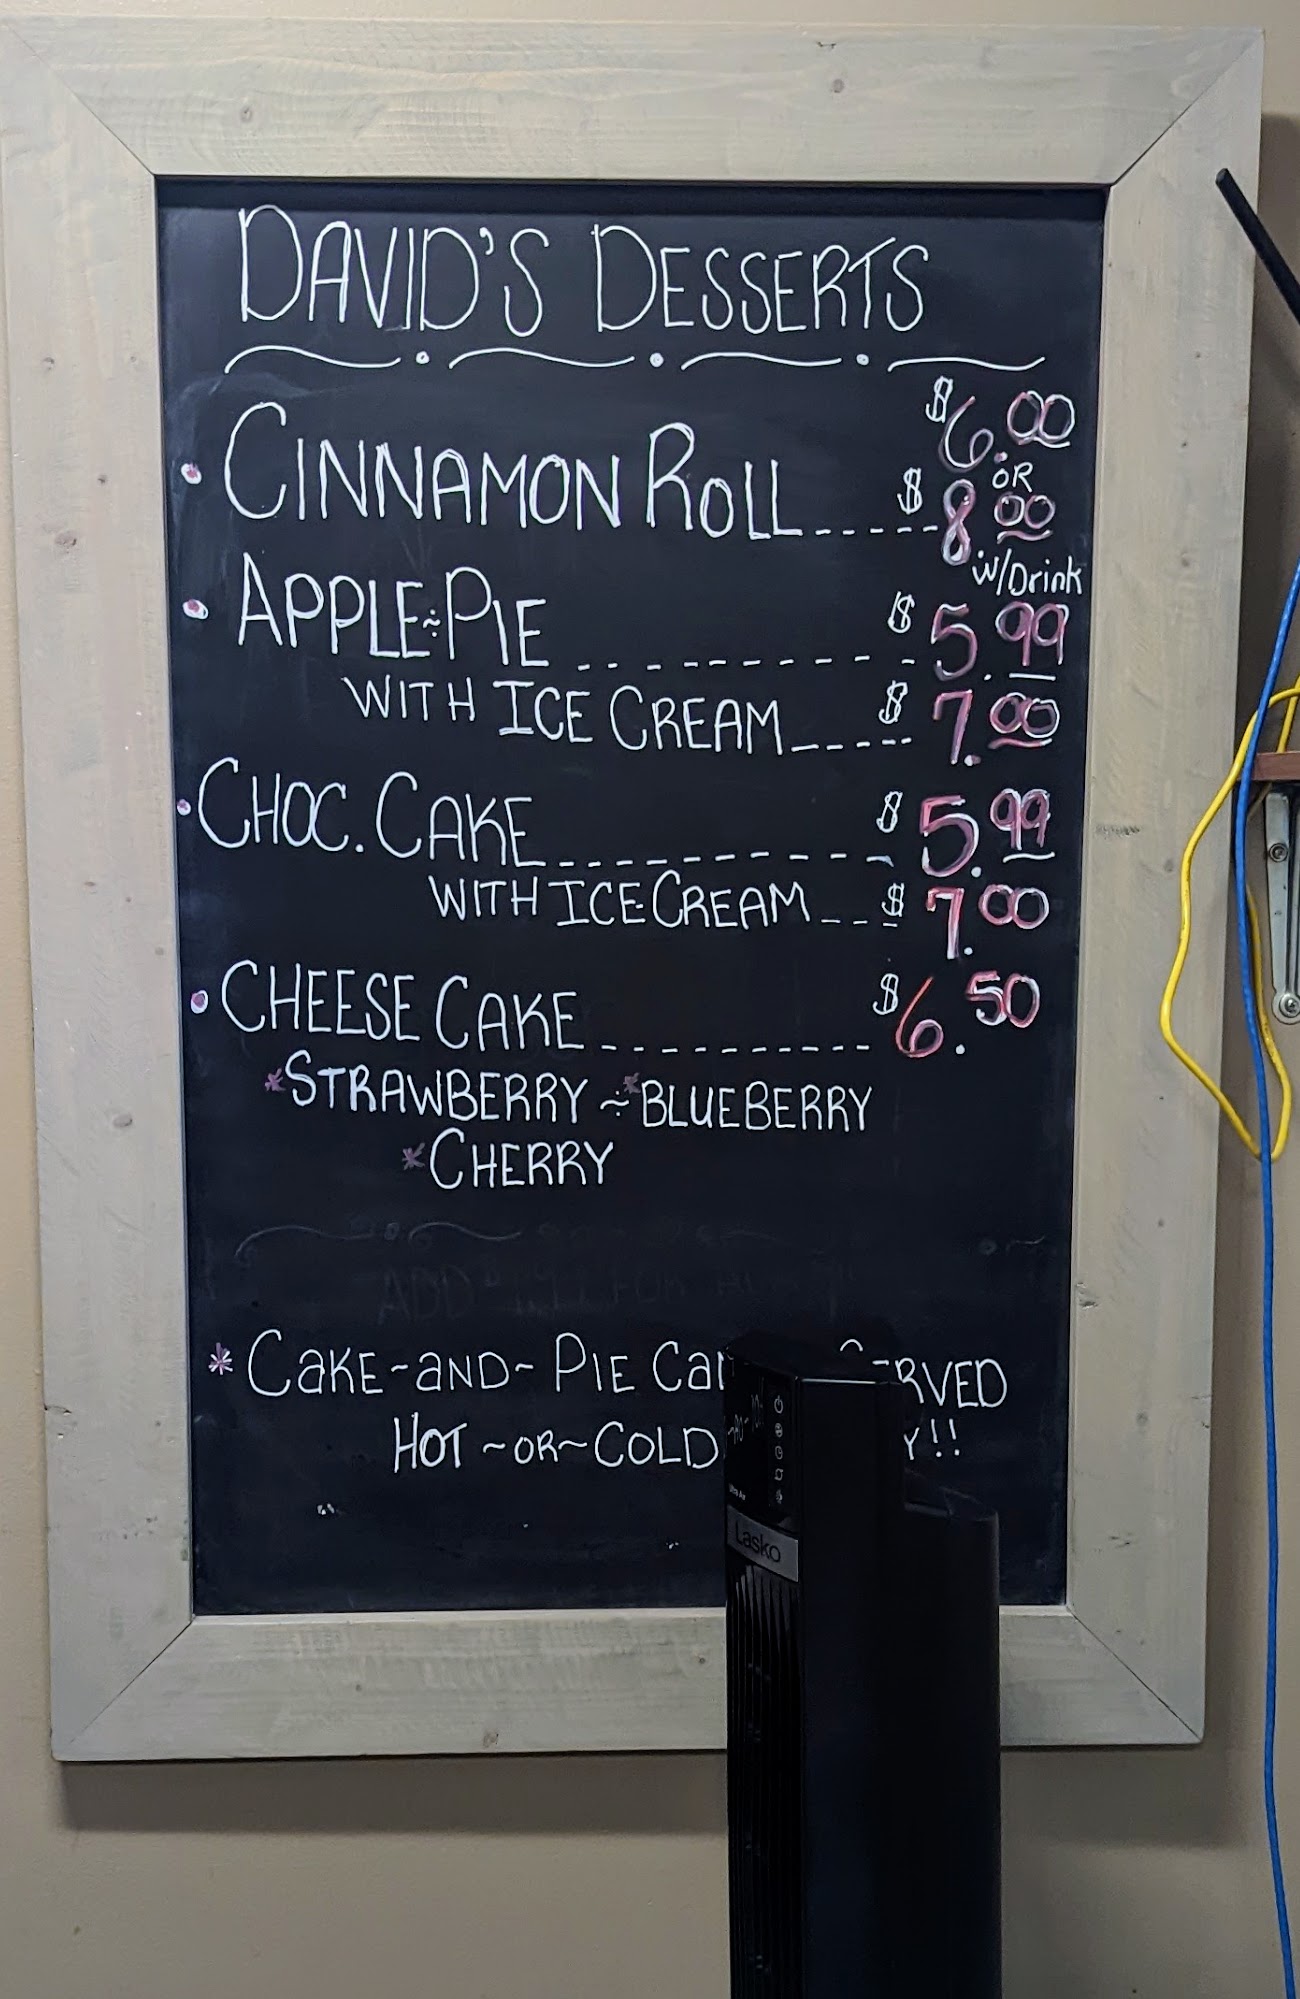 DAVID'S DESSERTS
$6.00
OR
• CINNAMON ROLL-----$8.00
w/Drink
• APPLE PIE ----------$5.99
WITH ICE CREAM-----$7.00
• CHOC. CAKE----------$5.99
WITH ICE CREAM--$7.00
• CHEESE CAKE----------$6.50
*STRAWBERRY ~ *BLUEBERRY
*CHERRY
* CAKE~AND~ PIE
HOT ~OR~ COLD
Lasko